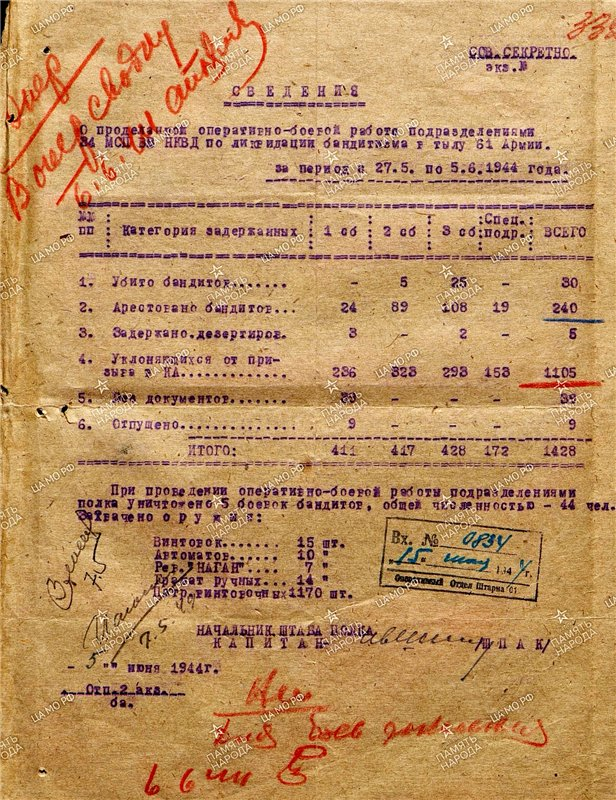 СОВ.СЕКРЕТНО.
экз.№
С В Е Д Е Н И Я
О проделанной оперативно-боевой работе подразделениями
34 МСП ВВ НКВД по ликвидации бандитизма в тылу 61 Армии.
за период с 27.5. по 5.6.1944 года.
№№ пп : Категория задержанных : 1 сб : 2 сб : 3 сб : Спец. подр. : ВСЕГО
1. Убито бандитов....... - 5 25 - 30
2. Арестовано бандитов... 24 89 108 19 240
3. Задержано дезертиров. 3 - 2 - 5
4. Уклоняющихся от при-
зыва в КА............. 236 323 293 153 1105
5. Без документов....... 39 - - - 39
6. Отпущено............. 9 - - - 9
ИТОГО: 411 417 428 172 1428
При проведении оперативно-боевой работы подразделениями
полка уничтожено 5 боевок бандитов, общей численностью - 44 чел.
Захвачено о р у ж и я:
Винтовок....... 15 шт.
Автоматов...... 10 "
Рев."НАГАН".... 7 "
Гранат ручных.. 14 "
Патр.винтовочных 1170 шт.
Вх. № 0834
"15" 1944г.
Оперативный Отдел Штарма 61
7.5
НАЧАЛЬНИК ШТАБА ПОЛКА
К А П И Т А Н /Ш П А К/
- "" июня 1944г.
Отп.2 экз.
ба.
В опер сводку
6.6.44
6 6 44
ПАМЯТЬ НАРОДА
ЦАМО.РФ